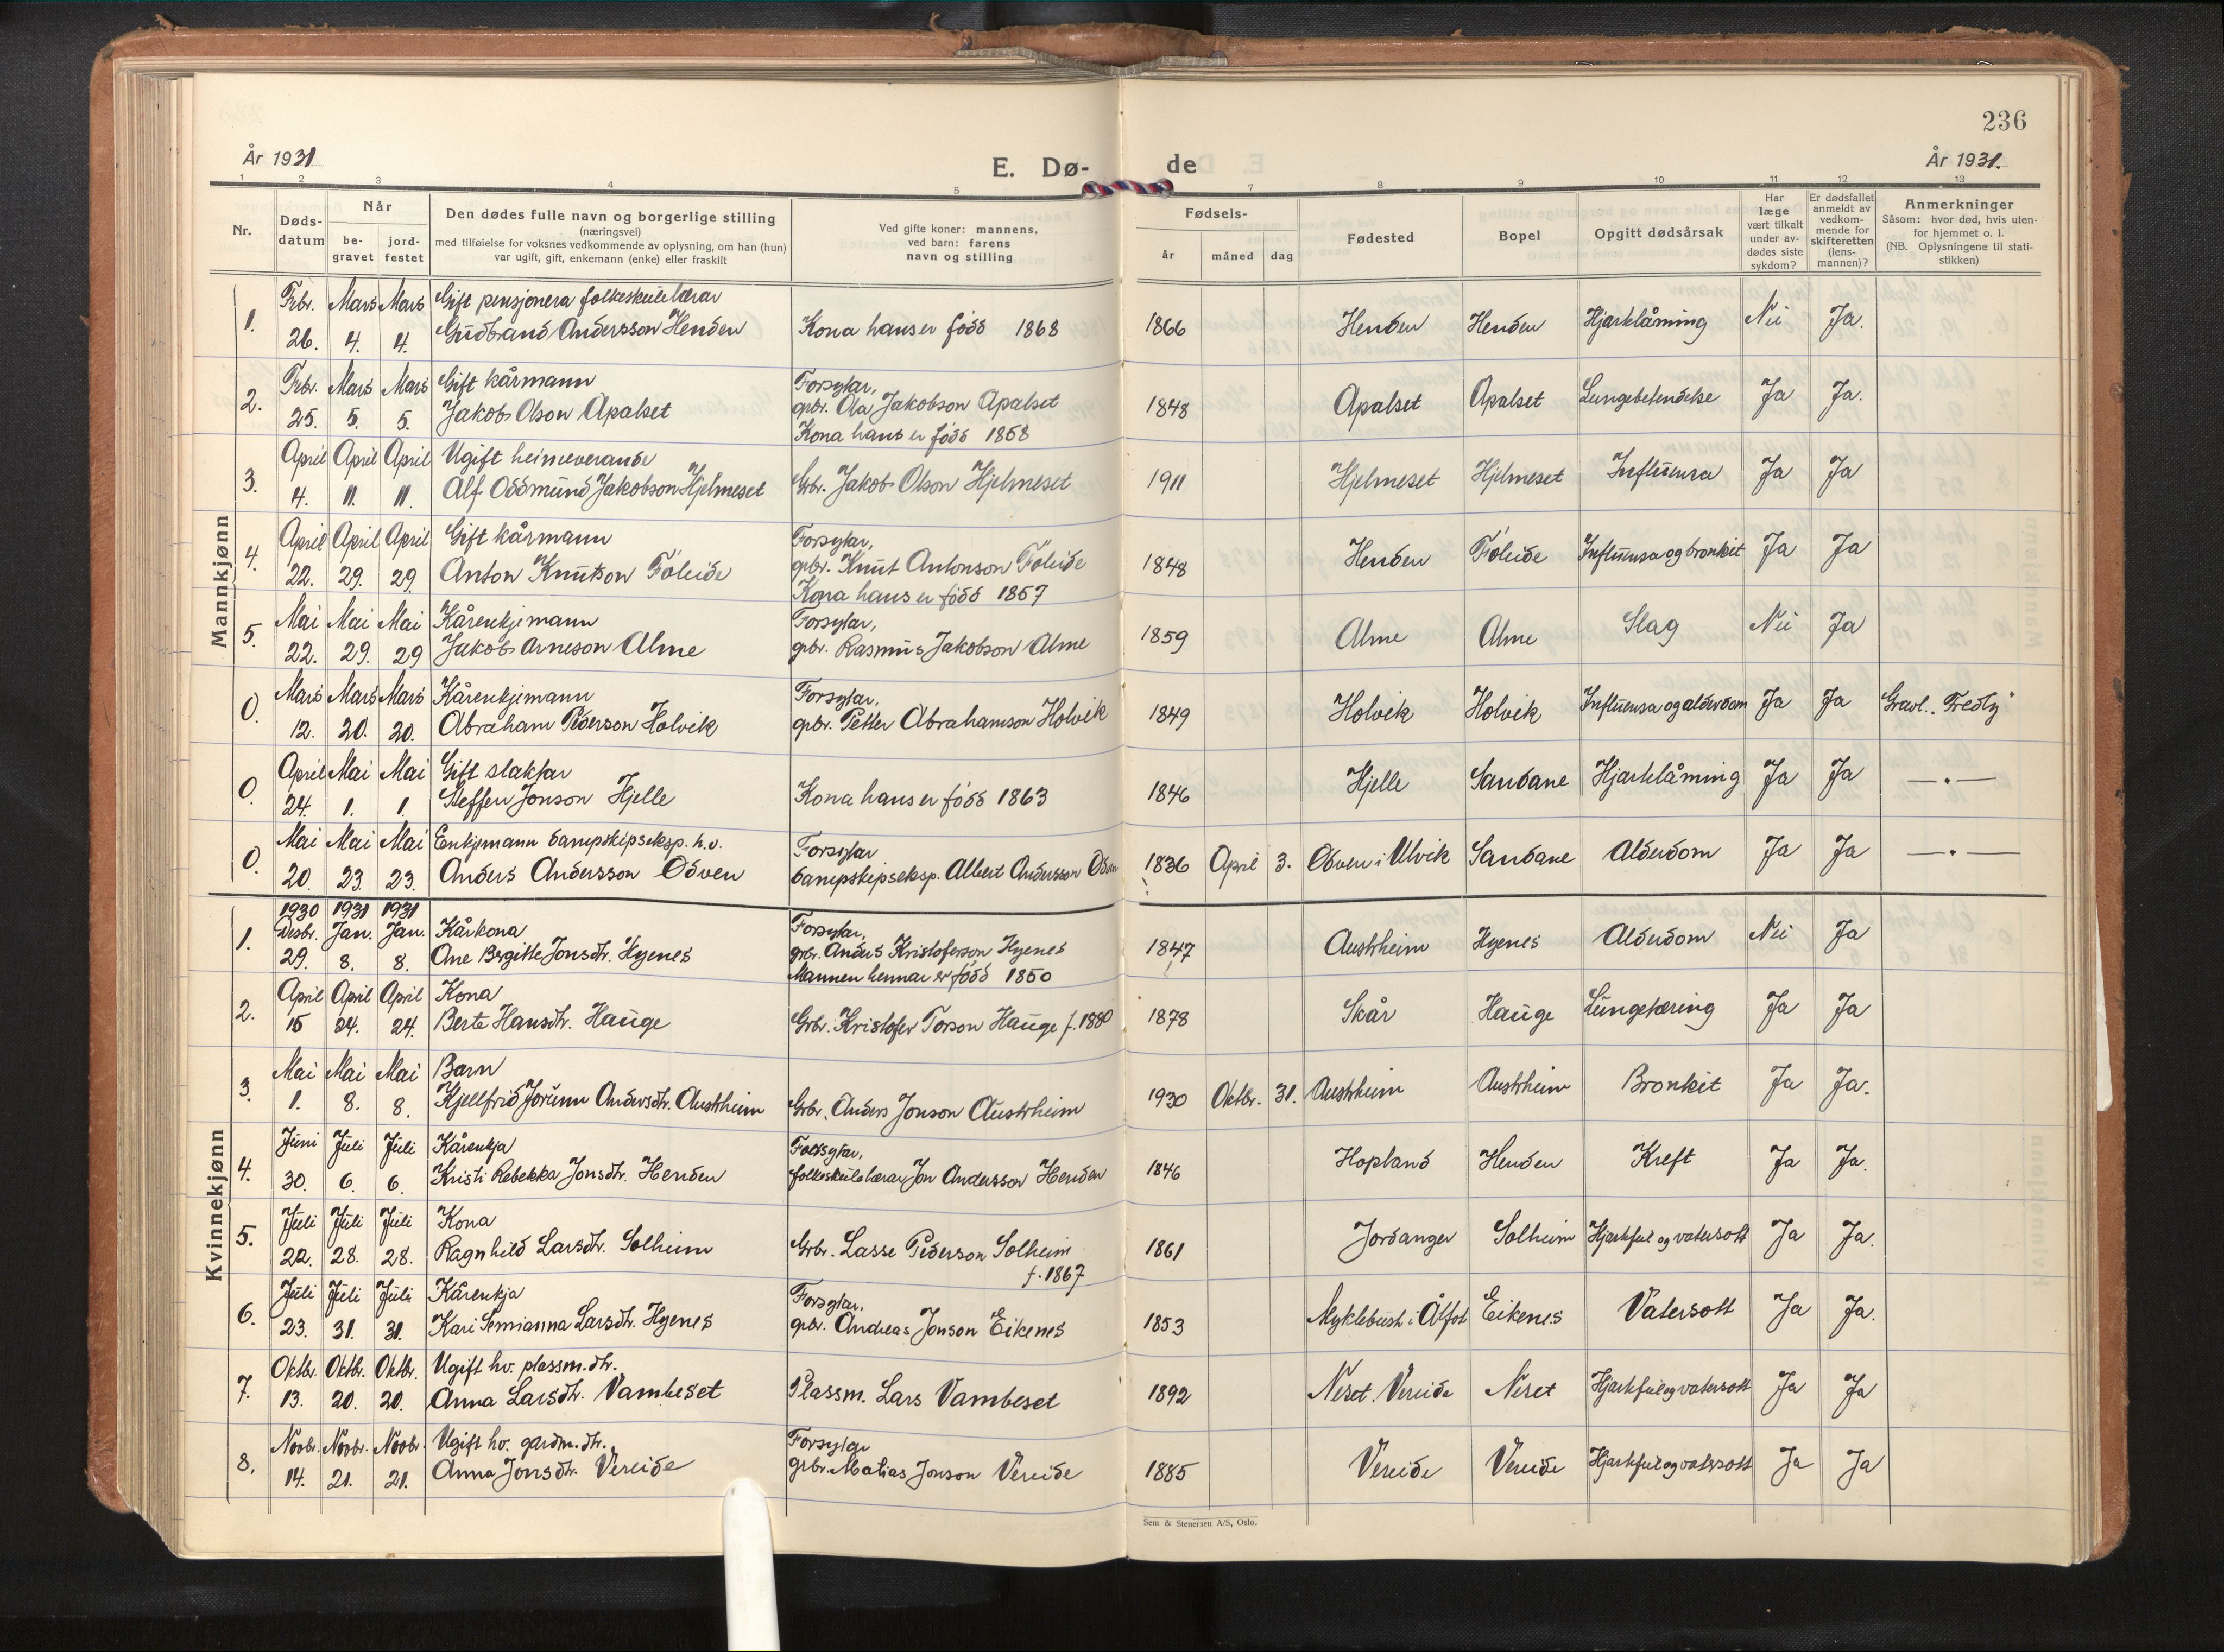 236
År 1931
E. Dø-
de
År 1931.
1 2 3 4 5 7 8 9 10 11 12 13
Nr.
Døds-
datum
Når
be-
gravet
jord-
festet
Den dødes fulle navn og borgerlige stilling
(næringsvei)
med tilføielse for voksnes vedkommende av oplysning, om han (hun)
var ugift, gift, enkemann (enke) eller fraskilt
Ved gifte koner: mannens,
ved barn: farens
navn og stilling
Fødsels-
år måned dag
Fødested
Bopel
Opgitt dødsårsak
Har
læge
vært tilkalt
under av-
dødes siste
sykdom?
Er dødsfallet
anmeldt av
vedkom-
mende for
skifteretten
(lens-
mannen)?
Anmerkninger
Såsom: hvor død, hvis uten-
for hjemmet o. l.
(NB. Oplysningene til stati-
stikken)
Mannkjønn
1. Febr. 26. Mars 4. Mars 4. Gift pensjonera folkeskulelærar
Gudbrand Andersson Henden Kona hans er född 1868 1866 Henden Henden Hjartelåming Nei Ja.
2. Febr. 25. Mars 5. Mars 5. Gift kårmann
Jakob Olson Apalset Forsytar,
grbr. Ola Jakobson Apalset
Kona hans er född 1858 1848 Apalset Apalset Lungebetendelse Ja Ja.
3. April 4. April 11. April 11. Ugift heimeverande
Alf Oddmund Jakobson Hjelmeset Grbr. Jakob Olson Hjelmeset 1911 Hjelmeset Hjelmeset Influensa Ja Ja
4. April 22. April 29. April 29 Gift kårmann
Anton Knutson Föleide Forsytar,
grbr. Knut Antonson Föleide
Kona hans er född 1857 1848 Henden Föleide Influensa og bronkit Ja Ja
5. Mai 22. Mai 29. Mai 29 Kårenkjemann
Jakob Arneson Alme Forsytar,
grbr. Rasmus Jakobson Alme 1859 Alme Alme Slag Nei Ja
0. Mars 12. Mars 20. Mars 20. Kårenkjemann
Abraham Pederson Holvik Forsytar,
grbr. Petter Abrahamson Holvik 1849 Holvik Holvik Influensa og alderdom Ja Ja Gravl. "Fredly"
0. April 24. Mai 1. Mai 1. Gift slaktar
Steffen Jonson Hjelle Kona hans er född 1863 1846 Hjelle Sandane Hjartelåming Ja Ja —•—
0. Mai 20. Mai 23. Mai 23. Enkjemann dampskipseksp. h.v.
Anders Andersson Odven Forsytar
dampskipseksp. Albert Andersson Odven 1836 April 3. Odven i Ulvik Sandane Alderdom Ja Ja —•—
Kvinnekjønn
1. 1930 Desbr. 29. 1931 Jan. 8. 1931 Jan. 8. Kårkona
Ane Bergitte Jonsdtr. Hyenes Forsytar,
grbr. Anders Kristoferson Hyenes
Mannen hennar er född 1850 1847 Austrheim Hyenes Alderdom Nei Ja
2. April 15 April 24. April 24. Kona
Berte Hansdtr. Hauge Grbr. Kristofer Torson Hauge f. 1880 1878 Skår Hauge Lungetæring Ja Ja
3. Mai 1. Mai 8. Mai 8. Barn
Kjellfrid Jorunn Andersdtr. Austrheim Grbr. Anders Jonson Austrheim 1930 Oktbr. 31. Austrheim Austrheim Bronkit Ja Ja.
4. Juni 30. Juli 6. Juli 6. Kårenkja
Kristi Rebekka Jonsdtr. Henden Forsytar,
folkeskulelærar Jon Andersson Henden 1846 Hopland Henden Kreft Ja Ja.
5. Juli 22. Juli 28. Juli 28. Kona
Ragnhild Larsdtr. Solheim Grbr. Lasse Pederson Solheim
f. 1867 1861 Jordanger Solheim Hjartefeil og vatersott Ja Ja.
6. Juli 23. Juli 31. Juli 31. Kårenkja
Kari Semianna Larsdtr. Hyenes Forsytar,
grbr. Andreas Jonson Eikenes 1853 Myklebust i Ålfot Eikenes Vatersott Ja Ja.
7. Oktbr. 13. Oktbr. 20. Oktbr. 20. Ugift hv. plassm.dtr.
Anna Larsdtr. Vambeset Plassm. Lars Vambeset 1892 Neset. Vereide Neset Hjartefeil og vatersott Ja Ja
8. Novbr. 14. Novbr. 21. Novbr. 21. Ugift hv. gardm.dtr.
Anna Jonsdtr. Vereide Forsytar
grbr. Matias Jonson Vereide 1885 Vereide Vereide Hjartefeil og vatersott Ja Ja
Sem & Stenersen A/S, Oslo.